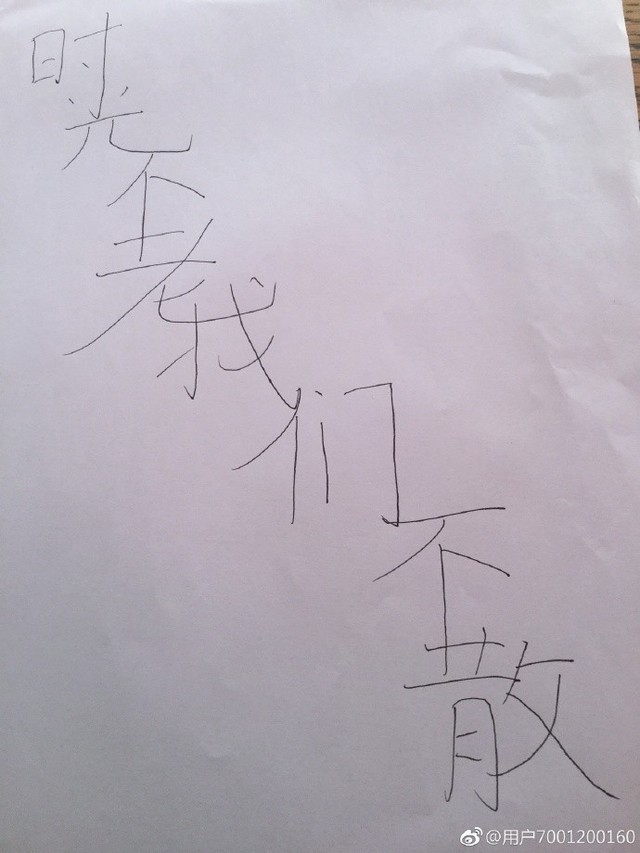 时光不老我们不散
@用户7001200160